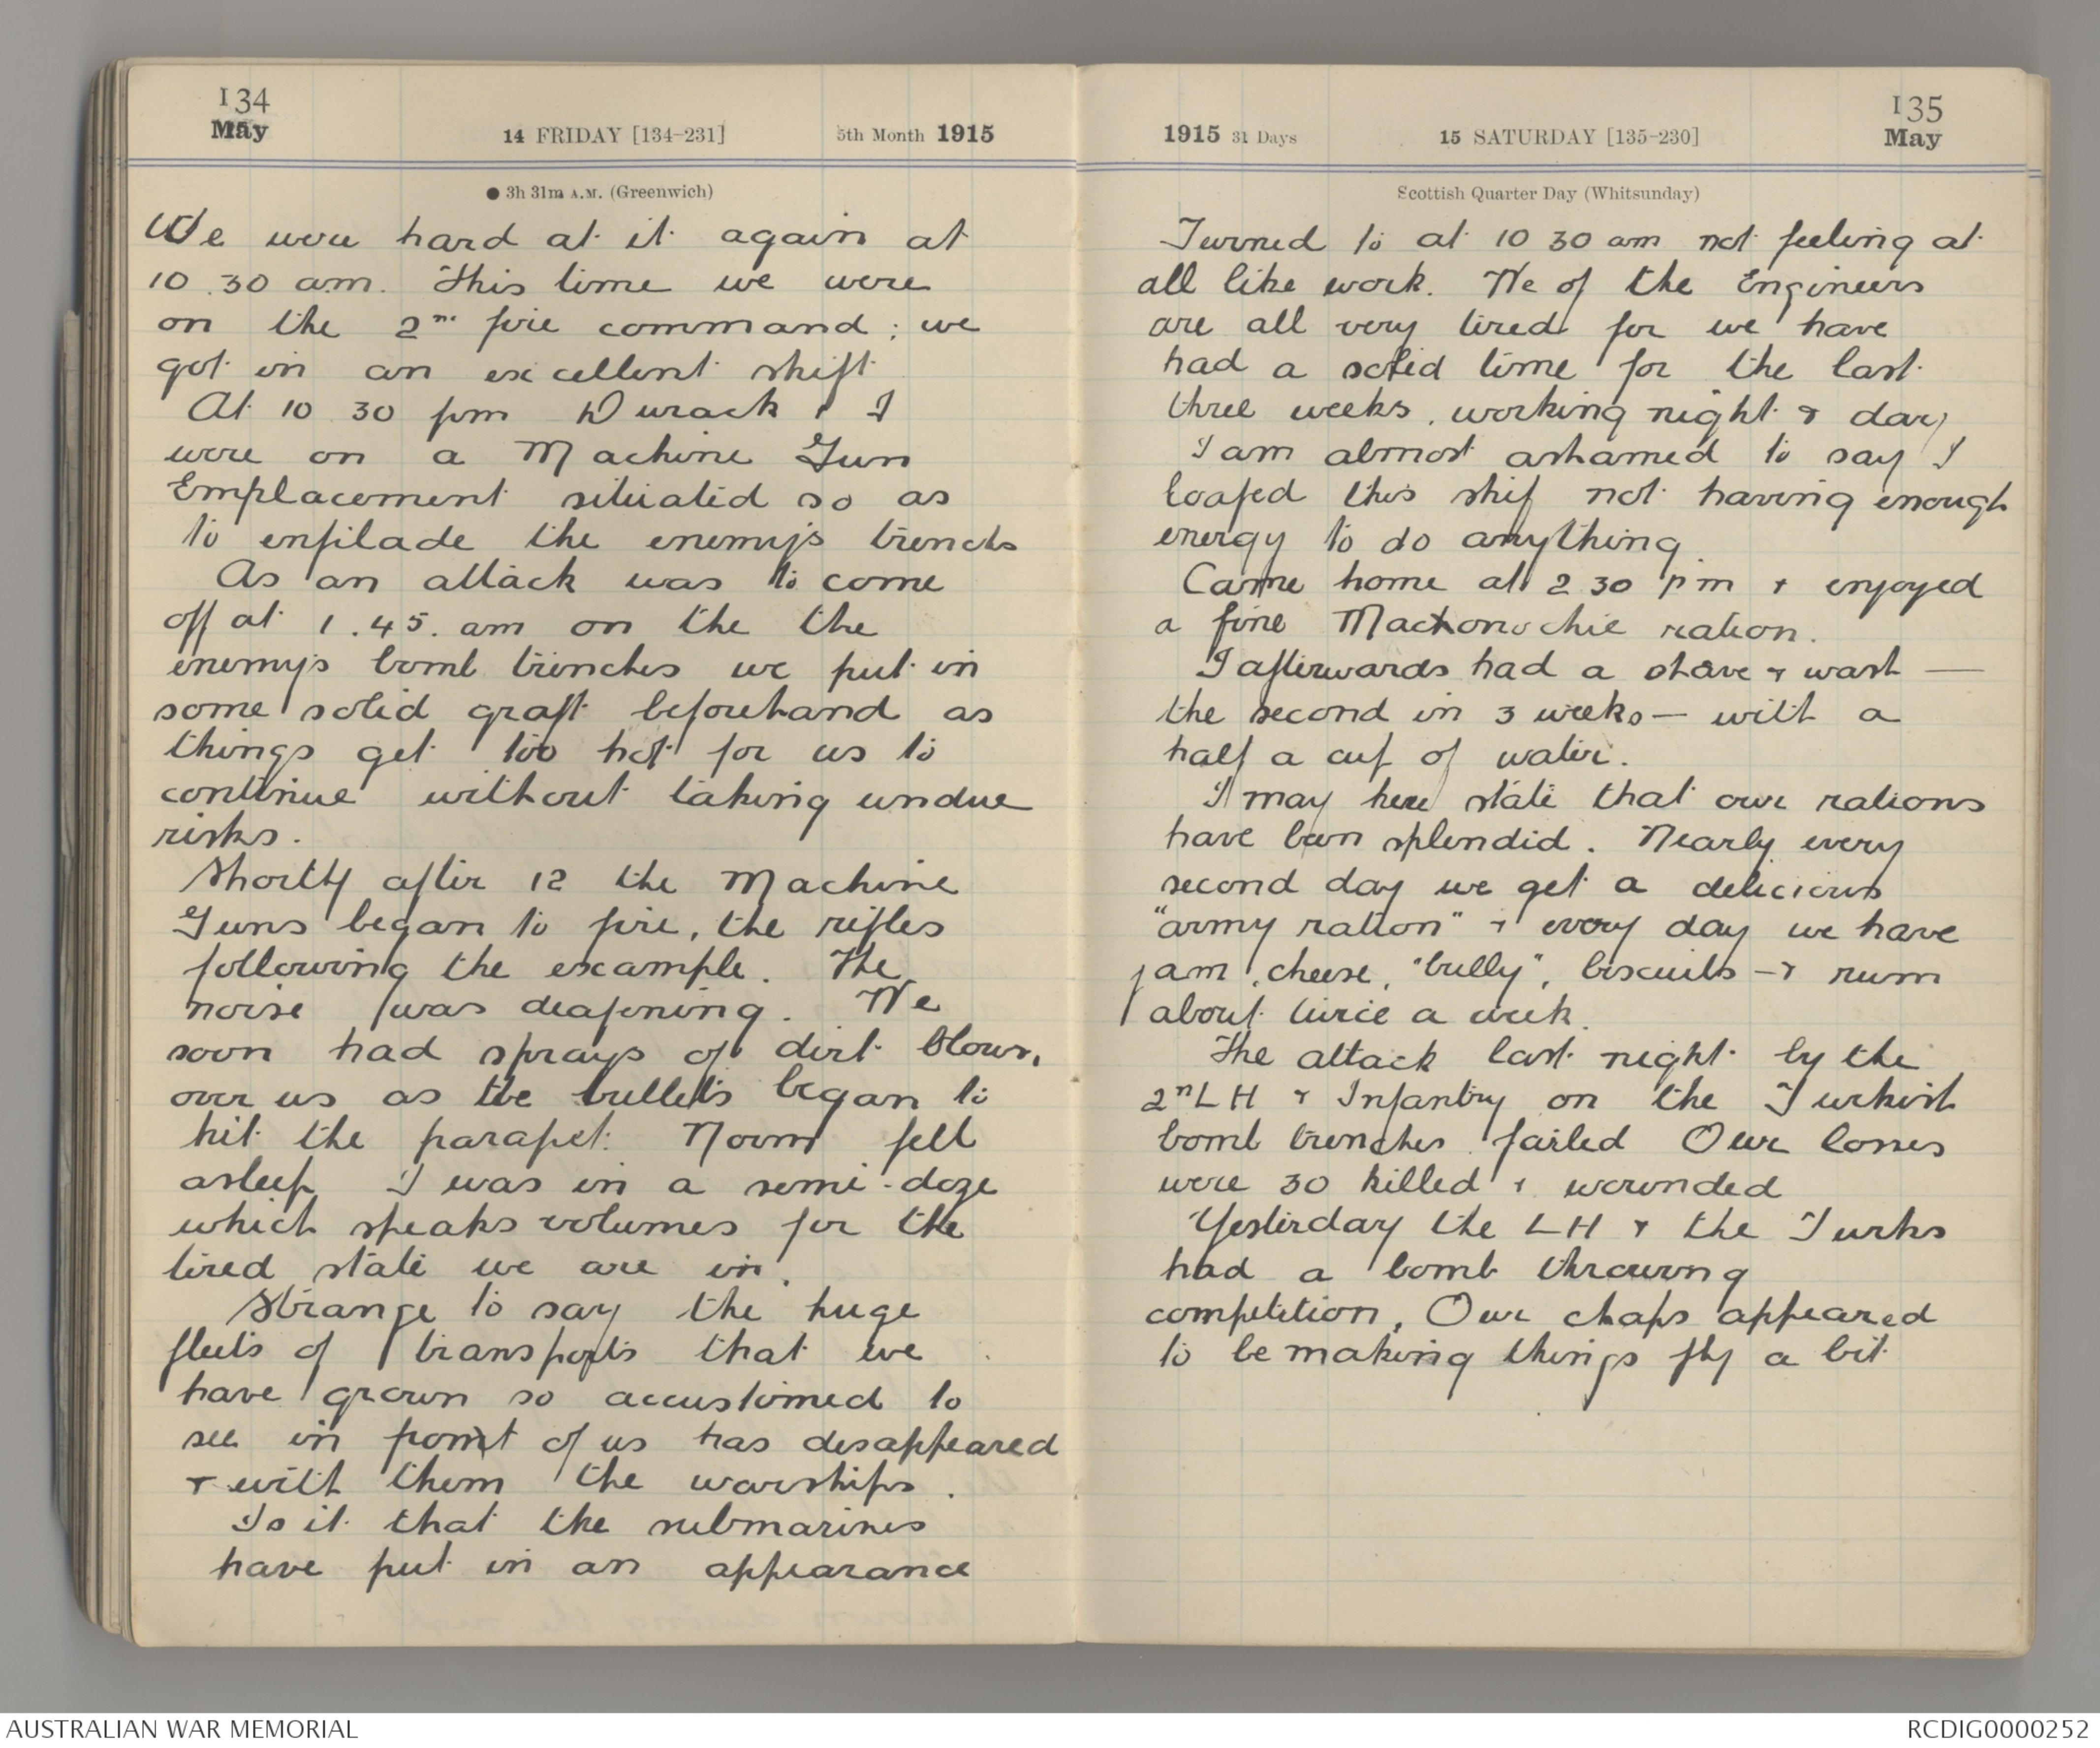 134
May
14 FRIDAY [134-231]
5th Month 1915
● 3h 31m A.M. (Greenwich)
We were hard at it again at
10.30 am. This time we were
on the 2nd fire command; we
got in an excellent shift
At 10 30 pm Durack & I
were on a Machine Gun
Emplacement situated so as
to enfilade the enemy's trenchs
As an attack was to come
off at 1.45. am on the the
enemy's bomb trenches we put in
some solid graft beforehand as
things get too hot for us to
continue without taking undue
risks.
Shortly after 12 the Machine
Guns began to fire, the rifles
following the example. The
noise was deafening. We
soon had sprays of dirt blown
over us as the bullets began to
hit the parapet. Norm fell
asleep I was in a semi-doze
which speaks volumes for the
tired state we are in.
Strange to say the huge
fleets of transports that we
have grown so accustomed to
see in front of us has disappeared
& with them the warships.
Is it that the submarines
have put in an appearance
135
May
1915 31 Days
15 SATURDAY [135-230]
Scottish Quarter Day (Whitsunday)
Turned to at 10 30 am not feeling at
all like work. We of the Engineers
are all very tired for we have
had a solid time for the last
three weeks, working night & day
I am almost ashamed to say I
loafed this shif not having enough
energy to do anything.
Came home at 2 30 pm & enjoyed
a fine Mackonochie ration.
I afterwards had a shave & wash —
the second in 3 weeks — with a
half a cup of water.
I may here state that our rations
have been splendid. Nearly every
second day we get a delicious
"army ration" & every day we have
jam, cheese, "bully", biscuits — & rum
about twice a week.
The attack last night by the
2nd LH & Infantry on the Turkish
bomb trenches failed Our losses
were 30 killed & wounded
Yesterday the LH & the Turks
had a bomb throwing
competition, Our chaps appeared
to be making things fly a bit
AUSTRALIAN WAR MEMORIAL
RCDIG0000252